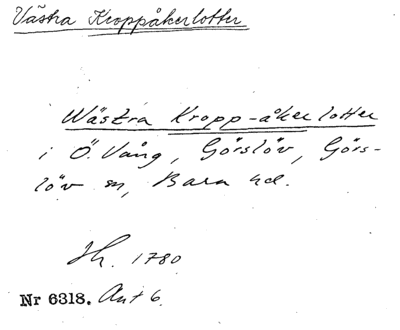 Västra Kroppåkerlotter
Wästra Kropp-åker lotter
i Ö. Vång, Görslöv, Görs-
löv sn, Bara hd.
Jh. 1780
Nr 6318. Akt 6.